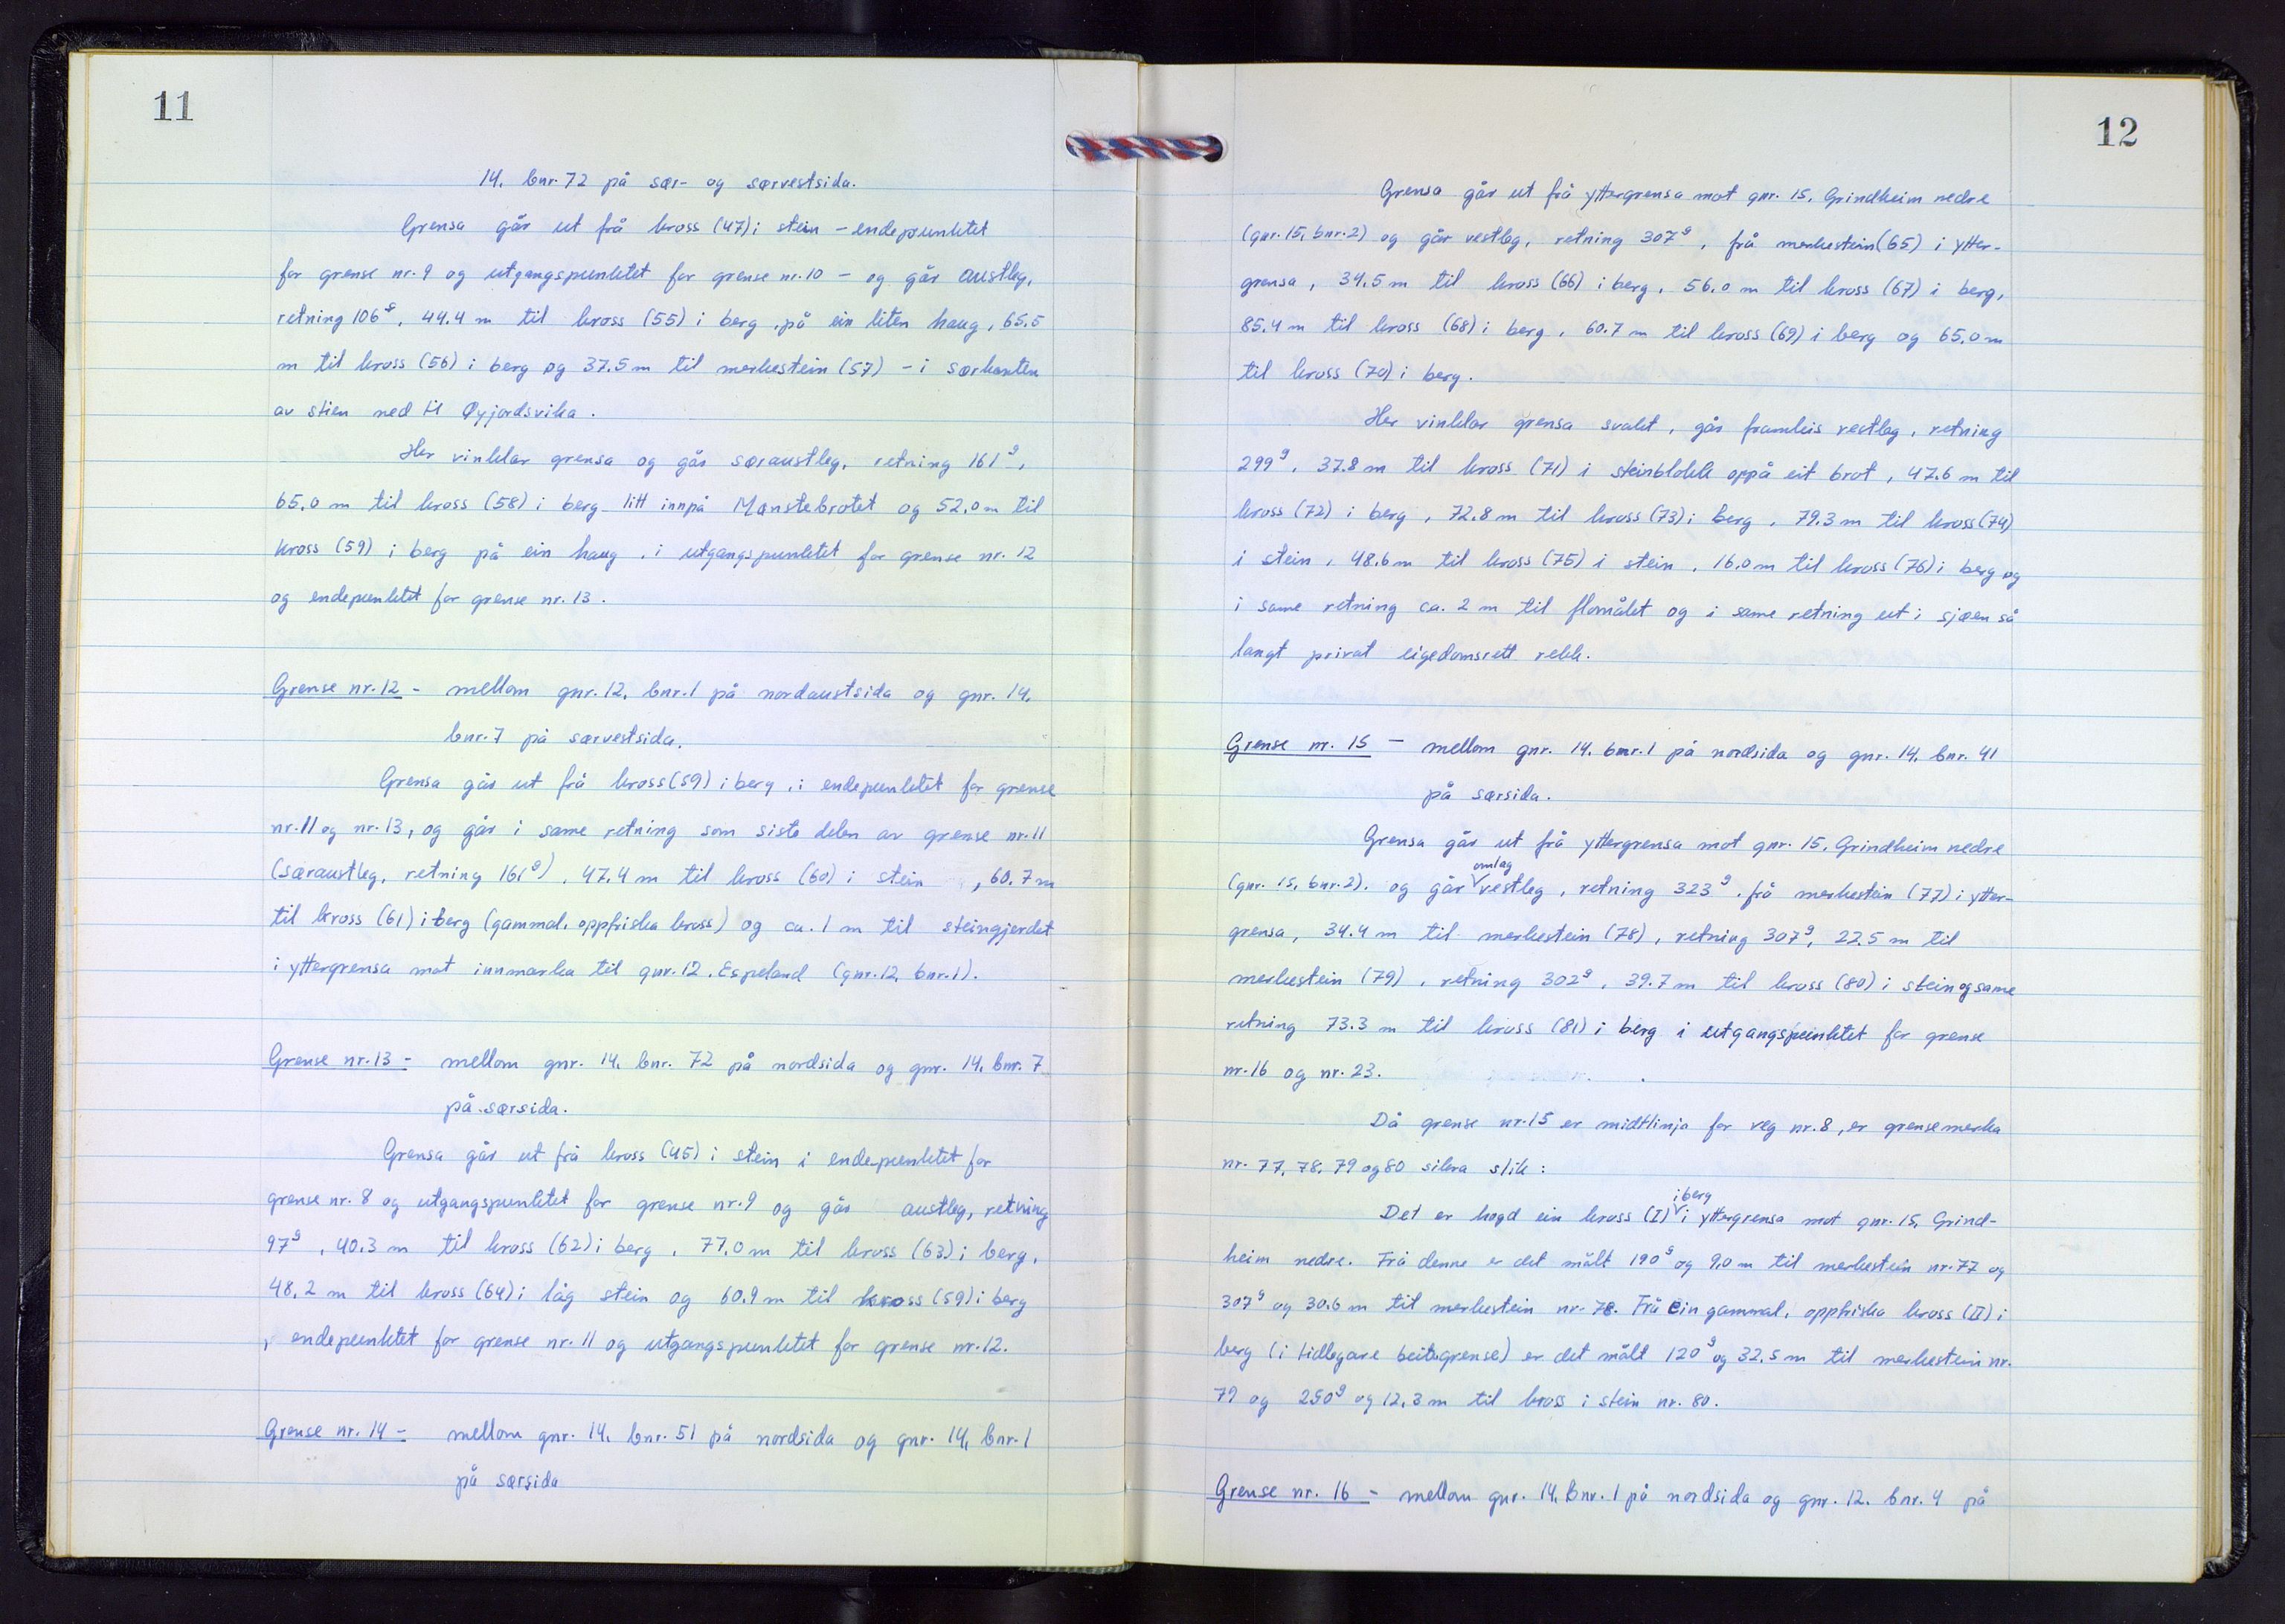 11
14, bnr. 72 på sør- og sørvestsida.
Grensa går ut frå kross (47) i stein - endepunktet
for grense nr. 9 og utgangspunktet for grense nr. 10 - og går austleg,
retning 106g, 44.4 m til kross (55) i berg, på ein liten haug, 65.5
m til kross (56) i berg og 37.5 m til merkestein (57) - i sørkanten
av stien ned til Øyjordsvika.
Her vinklar grensa og går søraustleg, retning 161g,
65.0 m til kross (58) i berg litt innpå Mønstebrotet og 52.0 m til
kross (59) i berg på ein haug, i utgangspunktet for grense nr. 12
og endepunktet for grense nr. 13.
Grense nr. 12 - mellom gnr. 12, bnr. 1 på nordaustsida og gnr. 14,
bnr. 7 på sørvestsida.
Grensa går ut frå kross (59) i berg, i endepunktet for grense
nr. 11 og nr. 13, og går i same retning som siste delen av grense nr. 11
(søraustleg, retning 161g), 47.4 m til kross (60) i stein , 60.7 m
til kross (61) i berg (gammal, oppfriska kross) og ca. 1 m til steingjerdet
i yttergrensa mot innmarka til gnr. 12, Espeland (gnr. 12, bnr. 1).
Grense nr. 13 - mellom gnr. 14, bnr. 72 på nordsida og gnr. 14, bnr. 7
på sørsida.
Grensa går ut frå kross (45) i stein i endepunktet for
grense nr. 8 og utgangspunktet for grense nr. 9 og går austleg, retning
97g, 40.3 m til kross (62) i berg, 77.0 m til kross (63) i berg,
48.2 m til kross (64) i låg stein og 60.9 m til kross (59) i berg
, endepunktet for grense nr. 11 og utgangspunktet for grense nr. 12.
Grense nr. 14 - mellom gnr. 14, bnr. 51 på nordsida og gnr. 14, bnr. 1
på sørsida
12
Grensa går ut frå yttergrensa mot gnr. 15, Grindheim nedre
(gnr. 15, bnr. 2) og går vestleg, retning 307g, frå merkestein (65) i ytter-
grensa, 34.5 m til kross (66) i berg, 56.0 m til kross (67) i berg,
85.4 m til kross (68) i berg, 60.7 m til kross (69) i berg og 65.0 m
til kross (70) i berg.
Her vinklar grensa svakt, går framleis vestleg, retning
299g, 37.8 m til kross (71) i steinblokk oppå eit brot, 47.6 m til
kross (72) i berg, 72.8 m til kross (73) i berg, 79.3 m til kross (74)
i stein, 48.6 m til kross (75) i stein, 16.0 m til kross (76) i berg og
i same retning ca. 2 m til flomålet og i same retning ut i sjøen så
langt privat eigedomsrett rekk.
Grense nr. 15 - mellom gnr. 14, bnr. 1 på nordsida og gnr. 14, bnr. 41
på sørsida.
Grensa går ut frå yttergrensa mot gnr. 15, Grindheim nedre
(gnr. 15, bnr. 2), og går omlag vestleg, retning 323g, frå merkestein (77) i ytter-
grensa, 34.4 m til merkestein (78), retning 307g, 22.5 m til
merkestein (79), retning 302g, 39.7 m til kross (80) i stein og same
retning 73.3 m til kross (81) i berg i utgangspunktet for grense
nr. 16 og nr. 23.
Då grense nr. 15 er midtlinja for veg nr. 8, er grensemerka
nr. 77, 78, 79 og 80 sikra slik:
Det er hogd ein kross (I) i berg i yttergrensa mot gnr. 15, Grind-
heim nedre. Frå denne er det målt 190g og 9,0 m til merkestein nr. 77 og
307g og 30.6 m til merkestein nr. 78. Frå ein gammal, oppfriska kross (II) i
berg (i tidlegare beitegrense) er det målt 120g og 32,5 m til merkestein nr.
79 og 250g og 12,3 m til kross i stein nr. 80.
Grense nr. 16 - mellom gnr. 14, bnr. 1 på nordsida og gnr. 12. bnr. 4 på